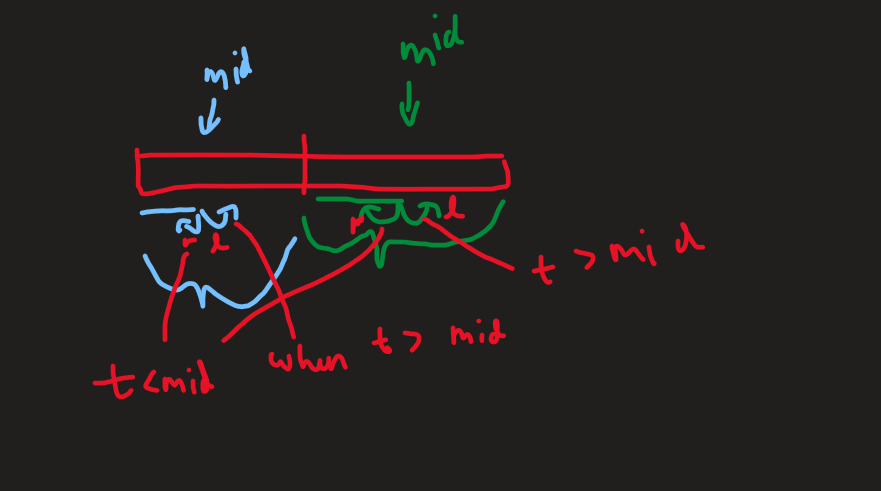 mid
mid
r l
r l
t > mid
t < mid
when t > mid